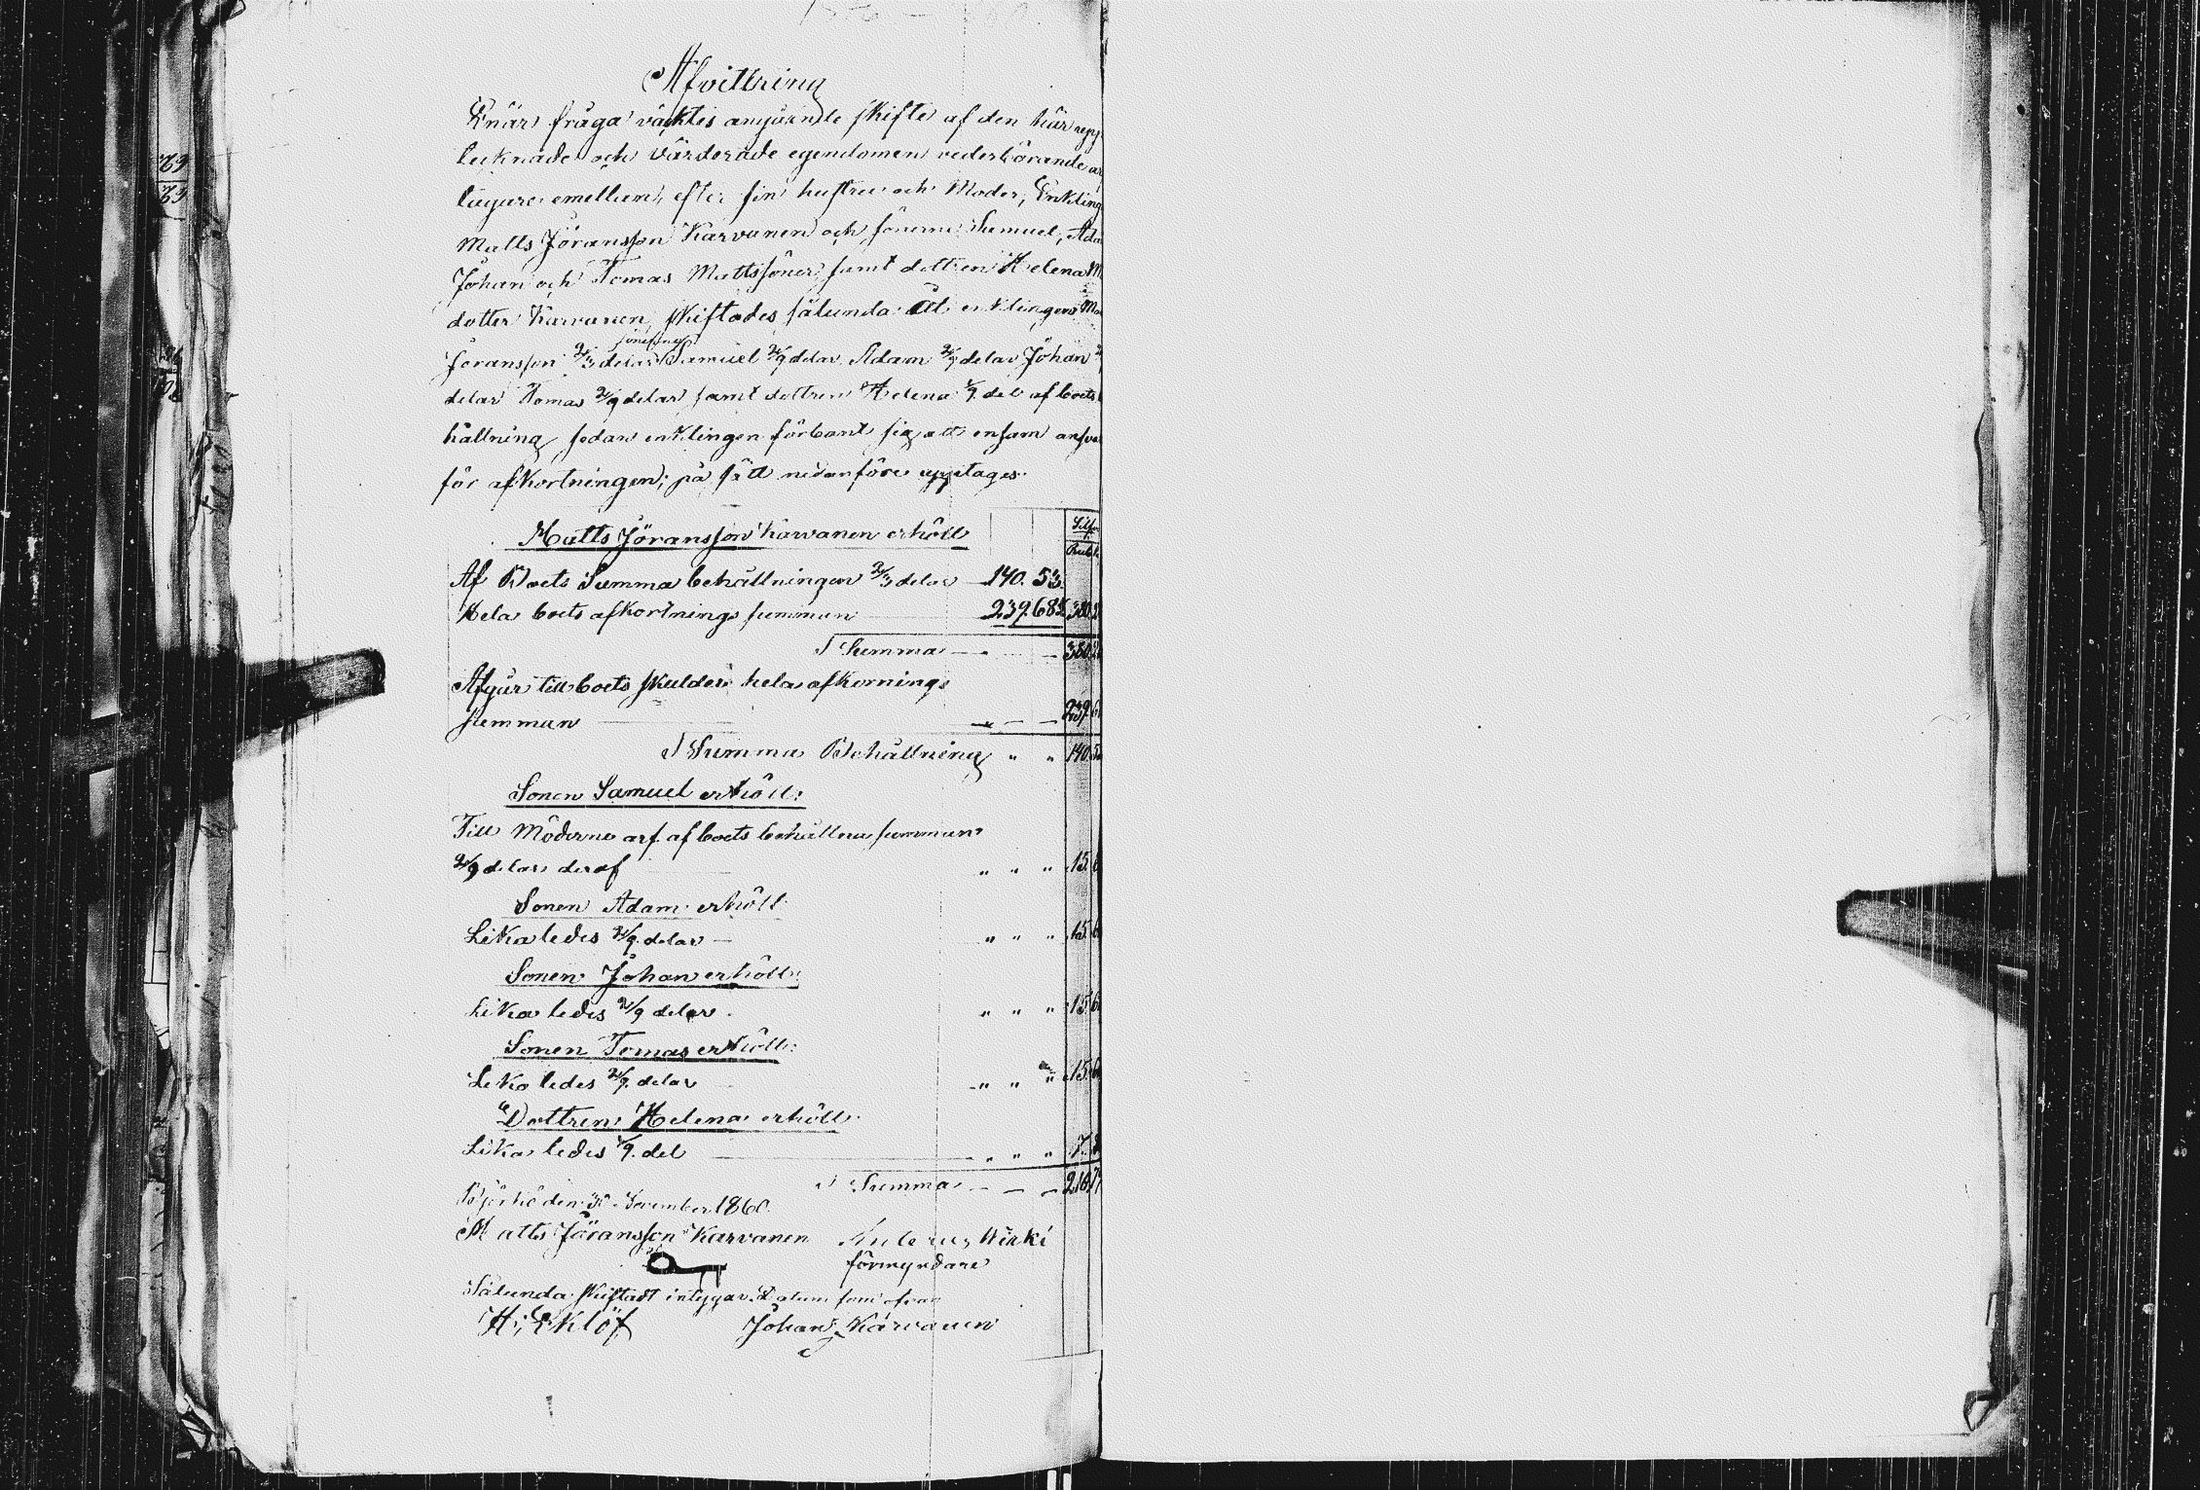 Afvittring
Enär fråga väcktes angående skifte af den här upp
tecknade och värderade egendomen vederbörande ar
tagare emellan, efter sin hustru och Moder, Enkling
Matts Jöransson Karvanen och sönerne Samuel, Ada
Johan och Tomas Mattssöner, samt dottren Helena M
dotter Karvanen, skiftades sålunda att enklingen Ma
Jöransson 2/3 delar sonen Samuel 2/9 delar Adam 2/9 delar Johan 2
delar Tomas 2/9 delar samt dottren Helena 1/9 del af boets
hållning, sedan enklingen förbant sig att ensam ansva
för afkortningen; på sätt nedanföre upptages.
Matts Jöransson Karvanen erhöll
Silf
Rub. k
Af Boets Summa behållningen 2/3 delar 140. 53.
Hela boets afkortnings summan 239. 68 380. 2
Summa 380. 2
Afgår till boets skulder hela afkornings
summan 239. 6
Summa Behållning " " 140. 5
Sonen Samuel erhöll:
Till Möderne arf af boets behållna summan
2/9 delar deraf " " " 15. 6
Sonen Adam erhöll
Lika ledes 2/9 delar " " " 15. 6
Sonen Johan erhöll:
Lika ledes 2/9 delar " " " 15. 6
Sonen Tomas erhöll:
Lika ledes 2/9 delar " " " 15. 6
Dottren Helena erhöll:
Lika ledes 1/9 del " " " 7. 8
Summa 210. 7
Björkö den December 1860.
Matts Jöransson Karvanen Anterus Wirki
förmyndare
Sålunda skiftadt intygar. Datum som ofvan
H: Eklöf Johan Karvanen